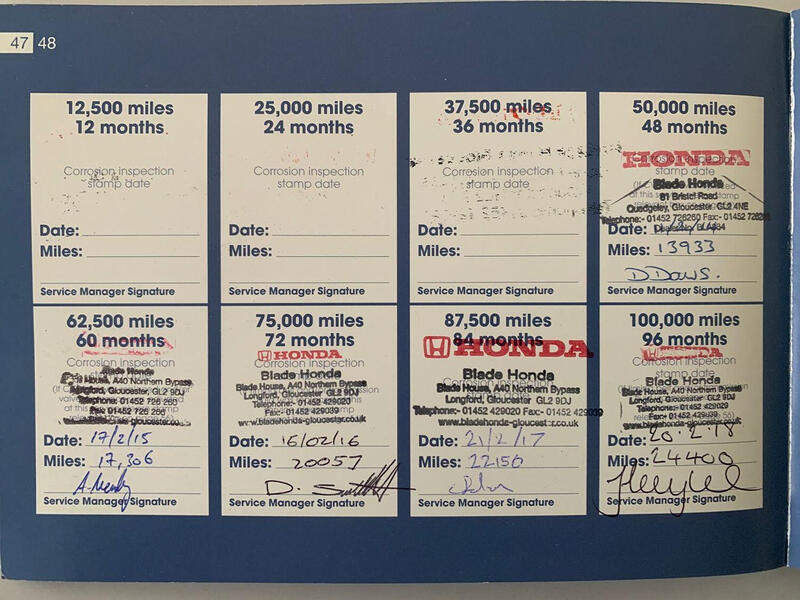 47 48
12,500 miles
12 months
Corrosion inspection
stamp date
Date:
Miles:
Service Manager Signature
25,000 miles
24 months
Corrosion inspection
stamp date
Date:
Miles:
Service Manager Signature
37,500 miles
36 months
Corrosion inspection
stamp date
Date:
Miles:
Service Manager Signature
50,000 miles
48 months
HONDA
Corrosion inspection
Blade Honda
81 Bristol Road
Quedgeley, Gloucester GL2 4NE
Telephone:- 01452 726260 Fax:- 01452
Date:
Miles: 13933
D Daws.
Service Manager Signature
62,500 miles
60 months
Corrosion inspection
Blade Honda
House, A40 Northern Bypass
Longford, Gloucester, GL2 9DJ
Telephone:- 01452 726 260
Fax: 01452 726
Date: 17/2/15
Miles: 17,306
Service Manager Signature
75,000 miles
72 months
HONDA
Corrosion inspection
Blade Honda
Blade House, A40 Northern Bypass
Longford, Gloucester, GL2 9DJ
Telephone:- 01452 429020
Fax:- 01452 429039
www.bladehonda-gloucester.co.uk
Date: 16/02/16
Miles: 20057
Service Manager Signature
87,500 miles
84 months
HONDA
Blade Honda
Corrosion inspection
Blade House, A40 Northern Bypass
Longford, Gloucester GL2 9DJ
Telephone:- 01452 429020 Fax:- 01452 429039
www.bladehonda-gloucester.co.uk
Date: 21/2/17
Miles: 22150
Service Manager Signature
100,000 miles
96 months
HONDA
Corrosion inspection
stamp date
Blade Honda
Blade House, A40 Northern Bypass
Longford, Gloucester, GL2 9DJ
Telephone:- 01452 429020
Fax:- 01452 429039
www.bladehonda-gloucester.co.uk
Date: 20.2.18
Miles: 24400
Service Manager Signature